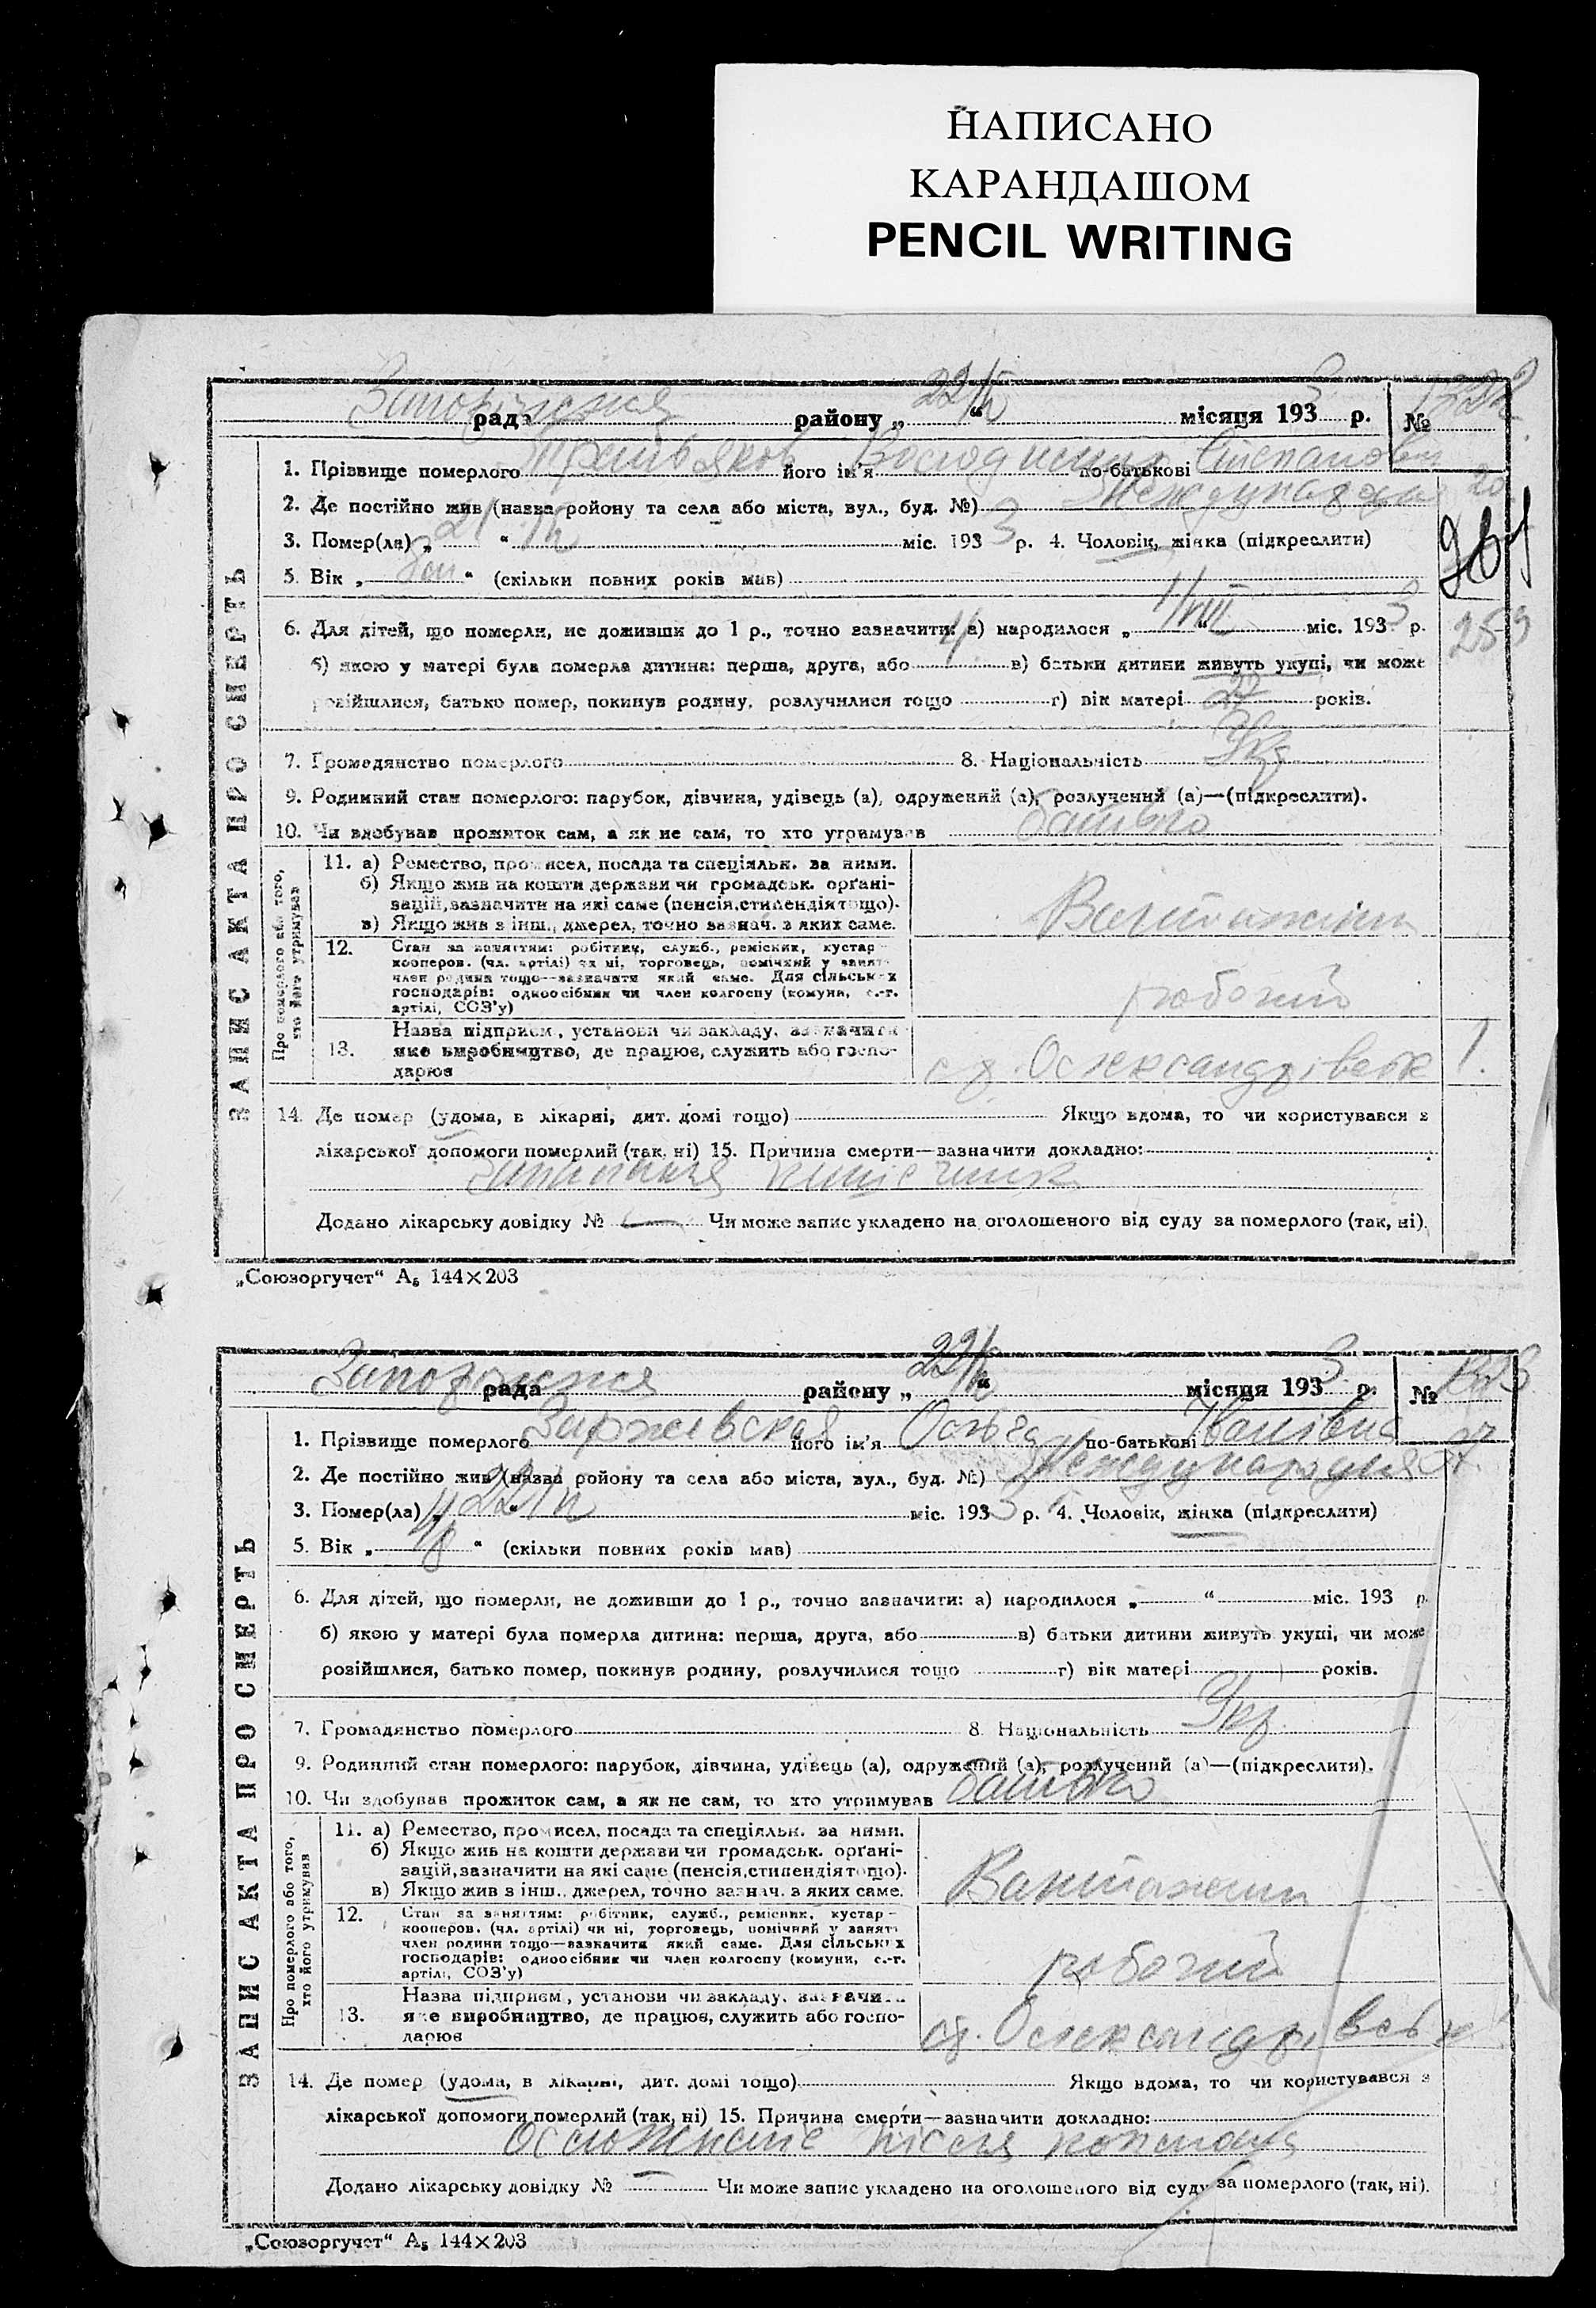 НАПИСАНО
КАРАНДАШОМ
PENCIL WRITING
Запоріжжя рада району „ 22/ІХ “ місяця 1933 р. №
1. Прізвище померлого Третьяков його ім'я Володимир по-батькові Степанович
2. Де постійно жив (назва ройону та села або міста, вул., буд. №) Международная 20
3. Помер(ла) „ 21 “ ІХ міс. 1933 р. 4. Чоловік, жінка (підкреслити)
5. Вік „ “ (скільки повних років мав)
259
6. Для дітей, що померли, не доживши до 1 р., точно зазначити: а) народилося „ 1/VIII міс. 1933 р.
б) якою у матері була померла дитина: перша, друга, або в) батьки дитини живуть укупі, чи може
розійшлися, батько помер, покинув родину, розлучилися тощо г) вік матері років.
7. Громадянство померлого 8. Національність Укр
9. Родинний стан померлого: парубок, дівчина, удівець (а), одружений (а), розлучений (а)—(підкреслити).
10. Чи здобував прожиток сам, а як не сам, то хто утримував батько
ЗАПИС АКТА ПРО СМЕРТЬ
Про померлого або того, хто його утримував
11. а) Ремество, промисел, посада та спеціяльн. за ними.
б) Якщо жив на кошти держави чи громадськ. орґані-
зацій, зазначити на які саме (пенсія, стипендія тощо).
в) Якщо жив з інш., джерел, точно зазнач. з яких саме.
Вантажник
12. Стан за заняттям: робітник, служб., ремісник, кустар-
кооперов. (чл. артілі) чи ні, торговець, помічний у занят.
член родини тощо—зазначити який саме. Для сільських
господарів: одноосібник чи член колгоспу (комуни, с.-г.
артілі, СОЗ'у)
робочий
13. Назва підприєм., установи чи закладу, зазначити
яке виробництво, де працює, служить або госпо-
дарює
ст. Олександрівськ 1.
14. Де помер (удома, в лікарні, дит. домі тощо) Якщо вдома, то чи користувався з
лікарської допомоги померлий (так, ні) 15. Причина смерти—зазначити докладно:
запалення кишечника
Додано лікарську довідку № — Чи може запис укладено на оголошеного від суду за померлого (так, ні).
„Союзоргучет“ А₅ 144×203
Запоріжжя рада району „ 22/ІХ “ місяця 1933 р. №
1. Прізвище померлого Заржевская його ім'я Ольга по-батькові Іванівна
2. Де постійно жив (назва ройону та села або міста, вул., буд. №) Международная
3. Помер(ла) „ 22 “ ІХ міс. 1933 р. 4. Чоловік, жінка (підкреслити)
5. Вік „ “ (скільки повних років мав)
6. Для дітей, що померли, не доживши до 1 р., точно зазначити: а) народилося „ “ міс. 193 р.
б) якою у матері була померла дитина: перша, друга, або в) батьки дитини живуть укупі, чи може
розійшлися, батько помер, покинув родину, розлучилися тощо г) вік матері років.
7. Громадянство померлого 8. Національність Укр.
9. Родинний стан померлого: парубок, дівчина, удівець (а), одружений (а), розлучений (а)—(підкреслити).
10. Чи здобував прожиток сам, а як не сам, то хто утримував батько
ЗАПИС АКТА ПРО СМЕРТЬ
Про померлого або того, хто його утримував
11. а) Ремество, промисел, посада та спеціяльн. за ними.
б) Якщо жив на кошти держави чи громадськ. орґані-
зацій, зазначити на які саме (пенсія, стипендія тощо).
в) Якщо жив з інш., джерел, точно зазнач. з яких саме.
Вантажник
12. Стан за заняттям: робітник, служб., ремісник, кустар-
кооперов. (чл. артілі) чи ні, торговець, помічний у занят.
член родини тощо—зазначити який саме. Для сільських
господарів: одноосібник чи член колгоспу (комуни, с.-г.
артілі, СОЗ'у)
робочий
13. Назва підприєм., установи чи закладу, зазначити
яке виробництво, де працює, служить або госпо-
дарює
ст. Олександрівськ
14. Де помер (удома, в лікарні, дит. домі тощо) Якщо вдома, то чи користувався з
лікарської допомоги померлий (так, ні) 15. Причина смерти—зазначити докладно:
після
Додано лікарську довідку № — Чи може запис укладено на оголошеного від суду за померлого (так, ні).
„Союзоргучет“ А₅ 144×203